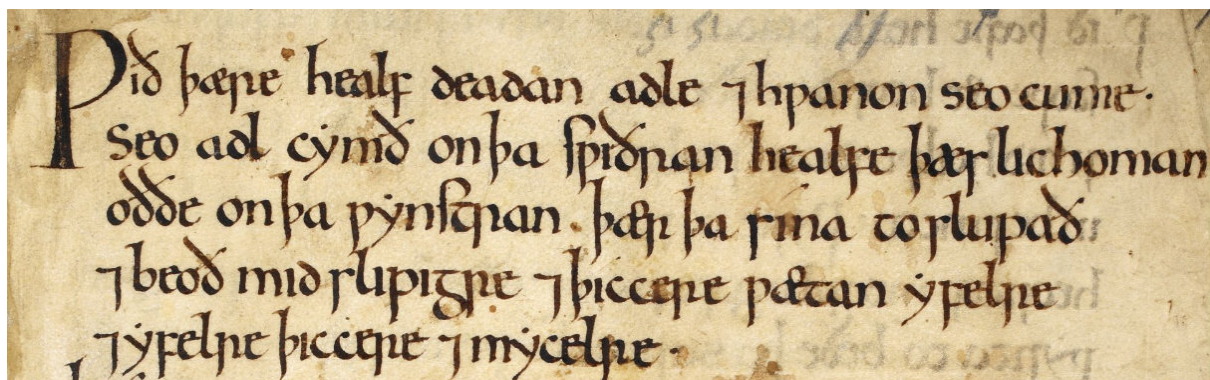 Ƿið þære healf deadan adle ⁊ hƿanon seo cume·
seo adl cymð on þa sƿiðran healfe þæs lichoman
oððe on þa ƿynstran · þær þa sina toslupað
⁊ beoð mid slipigre ⁊ þiccere ƿætan yfelre
⁊ yfelre þiccere ⁊ mycelre ·